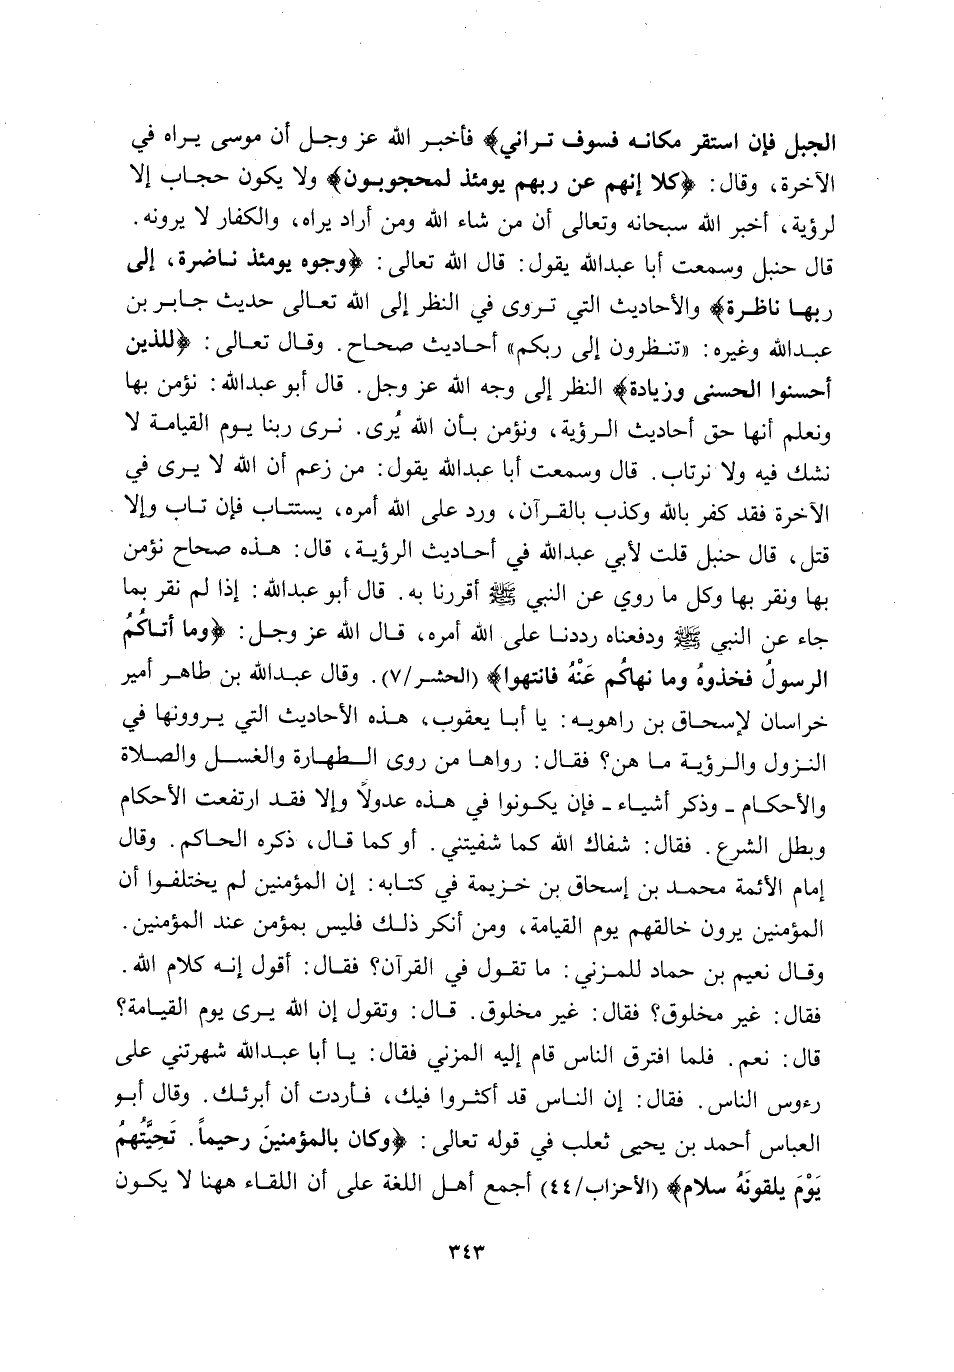 الجبل فإن استقر مكانه فسوف تراني﴾ فأخبر الله عز وجل أن موسى يراه في
الآخرة، وقال: ﴿كلا إنهم عن ربهم يومئذ لمحجوبون﴾ ولا يكون حجاب إلا
لرؤية، أخبر الله سبحانه وتعالى أن من شاء الله ومن أراد يراه، والكفار لا يرونه.
قال حنبل وسمعت أبا عبدالله يقول: قال الله تعالى: ﴿وجوه يومئذ ناضرة، إلى
ربها ناظرة﴾ والأحاديث التي تروى في النظر إلى الله تعالى حديث جابر بن
عبدالله وغيره: «تنظرون إلى ربكم» أحاديث صحاح. وقال تعالى: ﴿للذين
أحسنوا الحسنى وزيادة﴾ النظر إلى وجه الله عز وجل. قال أبو عبدالله: نؤمن بها
ونعلم أنها حق أحاديث الرؤية، ونؤمن بأن الله يُرى. نرى ربنا يوم القيامة لا
نشك فيه ولا نرتاب. قال وسمعت أبا عبدالله يقول: من زعم أن الله لا يرى في
الآخرة فقد كفر بالله وكذب بالقرآن، ورد على الله أمره، يستتاب فإن تاب وإلا
قتل، قال حنبل قلت لأبي عبدالله في أحاديث الرؤية، قال: هذه صحاح نؤمن
بها ونقر بها وكل ما روي عن النبي ﷺ أقررنا به. قال أبو عبدالله: إذا لم نقر بما
جاء عن النبي ﷺ ودفعناه رددنا على الله أمره، قال الله عز وجل: ﴿وما أتاكُمُ
الرسولُ فخذوهُ وما نهاكُم عَنْهُ فانتهوا﴾ (الحشر/٧). وقال عبدالله بن طاهر أمير
خراسان لإسحاق بن راهويه: يا أبا يعقوب، هذه الأحاديث التي يروونها في
النزول والرؤية ما هن؟ فقال: رواها من روى الطهارة والغسل والصلاة
والأحكام ـ وذكر أشياء ـ فإن يكونوا في هذه عدولاً وإلا فقد ارتفعت الأحكام
وبطل الشرع. فقال: شفاك الله كما شفيتني. أو كما قال، ذكره الحاكم. وقال
إمام الأئمة محمد بن إسحاق بن خزيمة في كتابه: إن المؤمنين لم يختلفوا أن
المؤمنين يرون خالقهم يوم القيامة، ومن أنكر ذلك فليس بمؤمن عند المؤمنين.
وقال نعيم بن حماد للمزني: ما تقول في القرآن؟ فقال: أقول إنه كلام الله.
فقال: غير مخلوق؟ فقال: غير مخلوق. قال: وتقول إن الله يرى يوم القيامة؟
قال: نعم. فلما افترق الناس قام إليه المزني فقال: يا أبا عبدالله شهرتني على
رءوس الناس. فقال: إن الناس قد أكثروا فيك، فأردت أن أبرئك. وقال أبو
العباس أحمد بن يحيى ثعلب في قوله تعالى: ﴿وكان بالمؤمنينَ رحيماً. تَحِيَّتُهمُ
يَوْمَ يلقونَهُ سلام﴾ (الأحزاب/٤٤) أجمع أهل اللغة على أن اللقاء ههنا لا يكون
٣٤٣